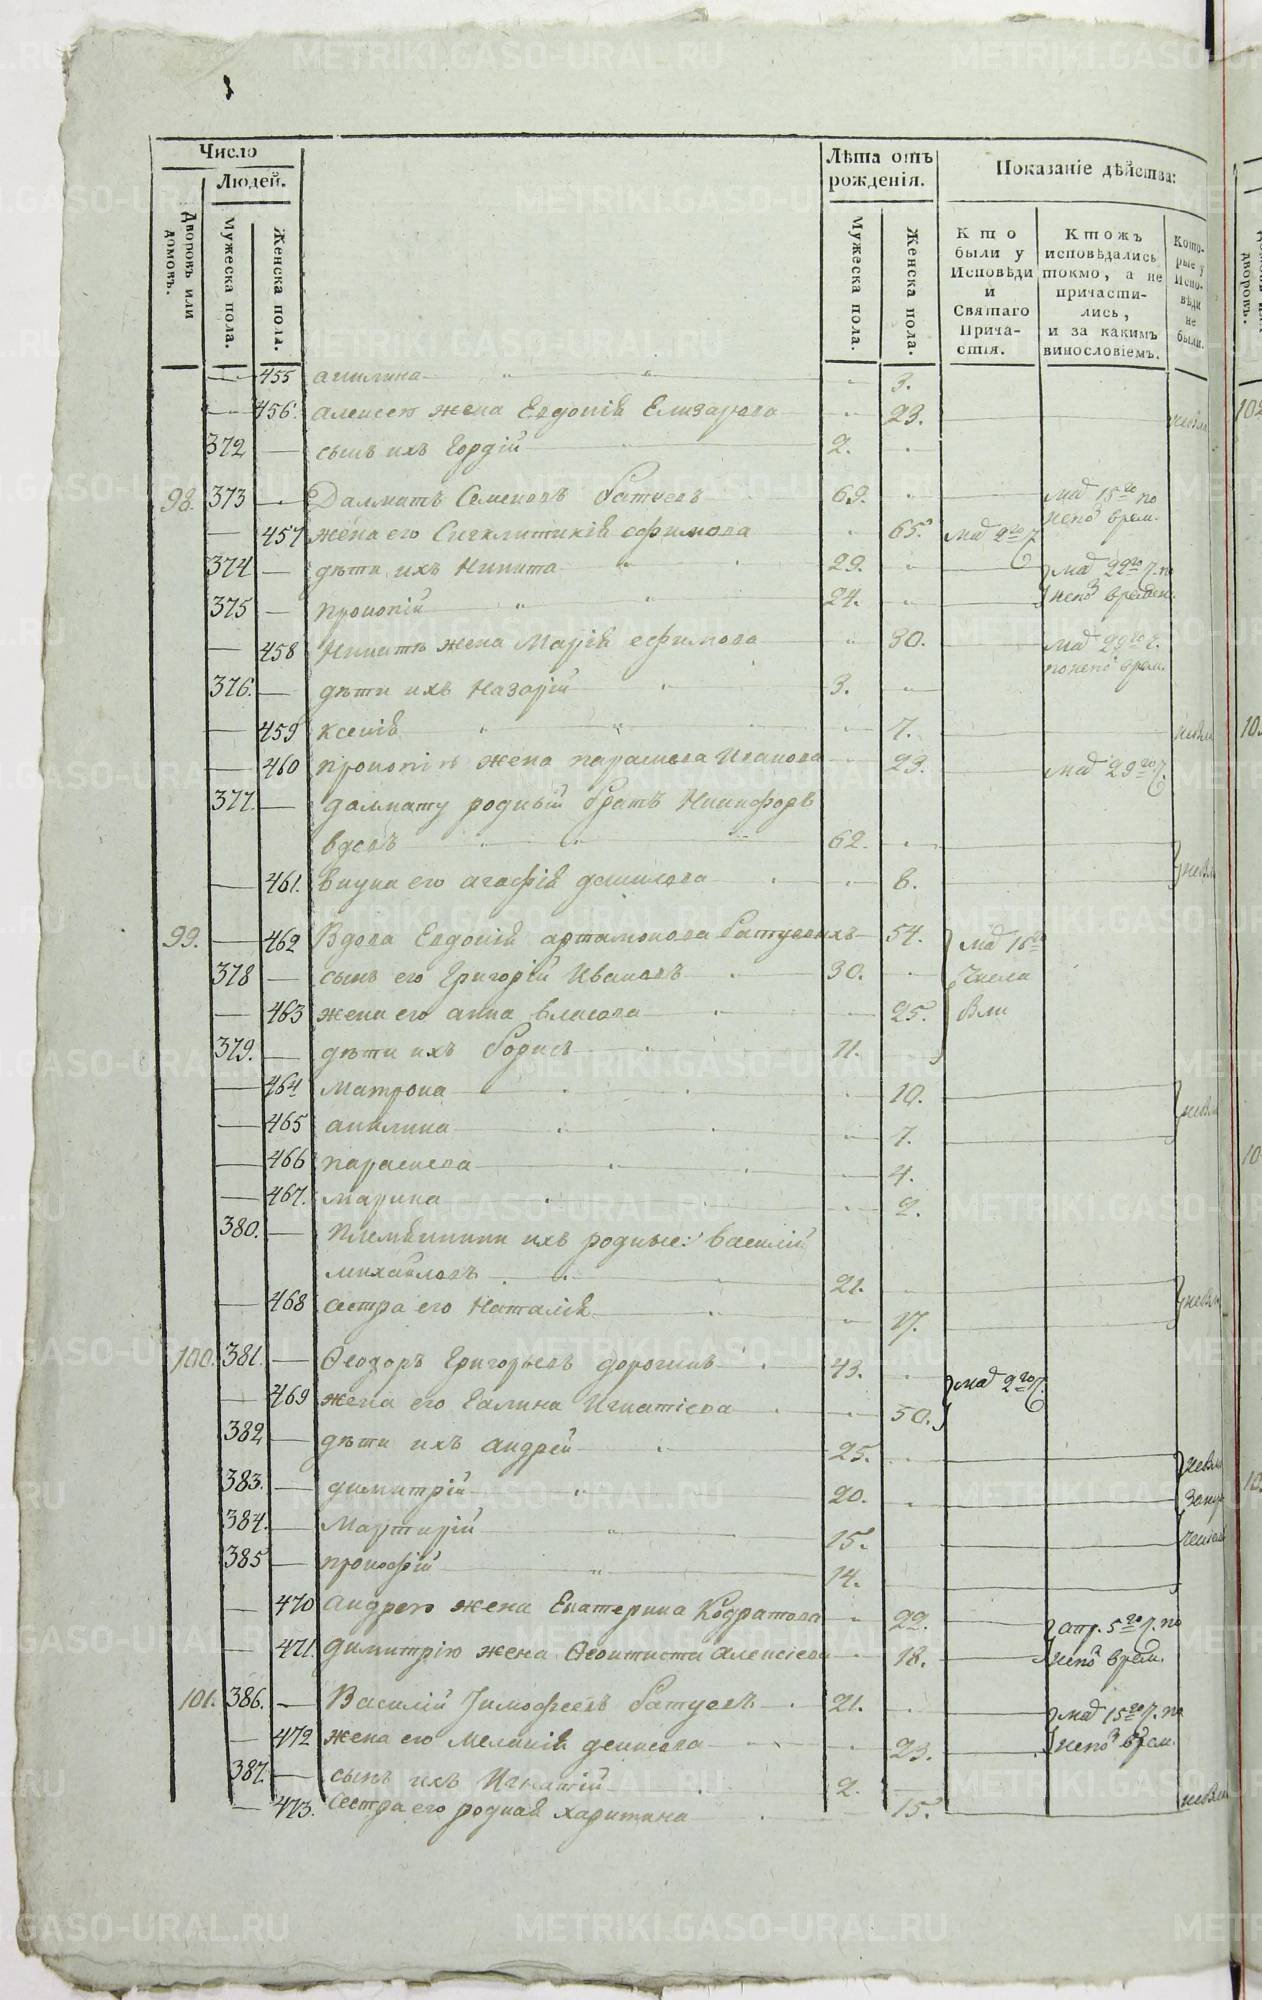 Число
Людей.
Лѣта отъ рожденія.
Показаніе дѣйства:
Дворовъ или домовъ.
Мужеска пола.
Женска пола.
Мужеска пола.
Женска пола.
Кто были у Исповѣди и Святаго Причастія.
Ктожъ исповѣдались токмо, а не причастились, и за какимъ винословіемъ.
Которые у Исповѣди не были.
455 акилина 3.
456. алексею жена Евдокія Елизарова 23.
372 сынъ ихъ Гордій 2.
98. 373 Далматъ Семеновъ батуевъ 69. маія 15го по
457 жена его Сигклитикія ефимова 65. маія 2го ч. непо врем.
374 дѣти ихъ Никита 29. маія 22го ч. по
375 прокопій 24. непо времен.
458 Никитѣ жена Марія ефимова 30. маія 22го ч.
по непо врем.
376. дѣти ихъ Назарій 3.
459 ксенія 7.
460 прокопію жена параскева Иванова 23. маія 29го ч.
377. далмату родный братъ Никифоръ
вдовъ 62.
461. внука его агафія данилова 8.
99. 462 Вдова Евдокія артамонова батуевыхъ 54. маія 15го
378 сынъ его Григорій Ивановъ 30. числа
463 жена его анна власова 25. Вли
379. дѣти ихъ борисъ 11.
464 матрона 10.
465 акилина 7.
466 параскева 4.
467. марина 2.
380. племянники ихъ родные: василій
михайловъ 21.
468 сестра его Наталія 17.
100. 381. Ѳеодоръ Григорьевъ дорогинъ 43.
469 жена его Галина Игнатіева 50. маія 2го ч.
382 дѣти ихъ андрей 25.
383. димитрій 20.
384. Мартирій 15.
385 прокофій 14.
470 андрею жена Екатерина Кодратова 22. апр. 5го ч. по
471. димитрію жена Ѳеоктиста алексіева 18. непо врем.
101. 386. Василій Тимофеевъ батуевъ 21. маія 15го ч. по
472 жена его меланія денисова 23. непо врем.
387. сынъ ихъ Игнатій 2.
473. сестра его родная харитина 15.
METRIKI.GASO-URAL.RU